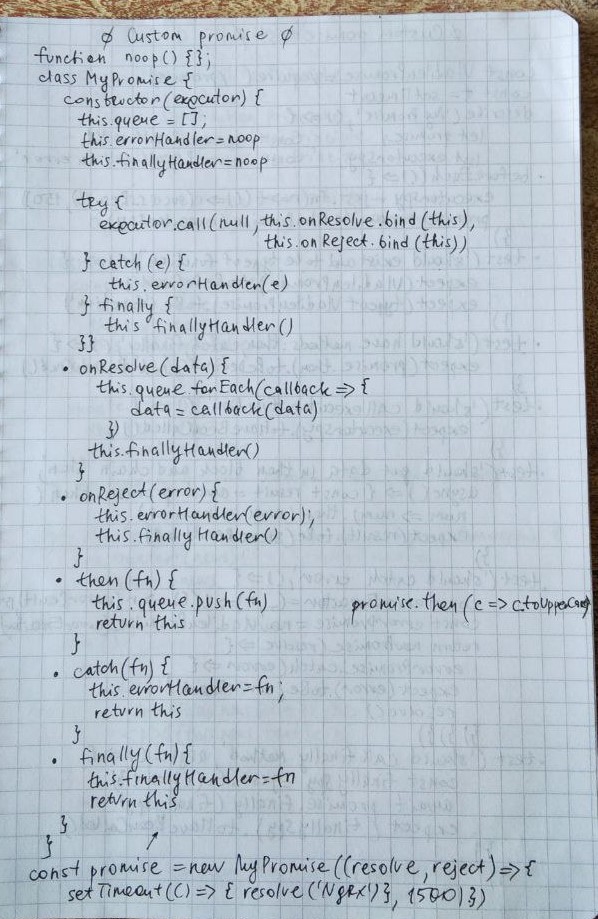 ∅ Custom promise ∅
function noop() {};
class MyPromise {
constructor(executor) {
this.queue = [];
this.errorHandler=noop
this.finallyHandler=noop
try {
executor.call(null, this.onResolve.bind(this),
this.onReject.bind(this))
} catch (e) {
this.errorHandler(e)
} finally {
this finallyHandler()
}}
• onResolve(data) {
this.queue.forEach(callback => {
data = callback(data)
})
this.finallyHandler()
}
• onReject(error) {
this.errorHandler(error);
this.finallyHandler()
}
• then (fn) {
this.queue.push(fn) promise.then (c => c.toUpperCase)
return this
}
• catch(fn) {
this.errorHandler=fn;
return this
}
• finally(fn) {
this.finallyHandler=fn
return this
}
}
const promise = new MyPromise((resolve, reject) => {
setTimeout(() => { resolve('NgRX')}, 1500)})